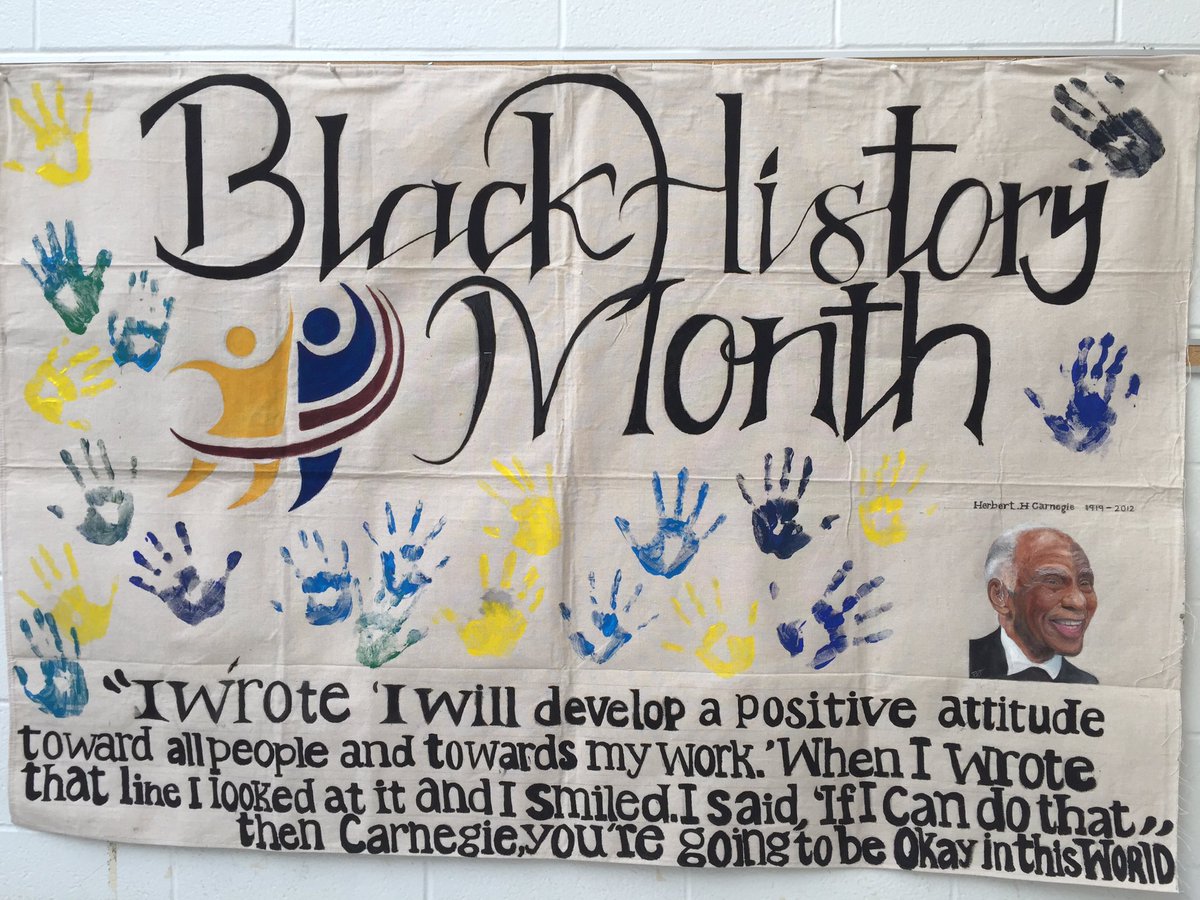 Black History
Month
Herbert H Carnegie 1919-2012
"I wrote 'I will develop a positive attitude
toward all people and towards my work.' When I wrote
that line I looked at it and I smiled. I said, 'If I can do that,,
then Carnegie, you're going to be Okay in this WORLD